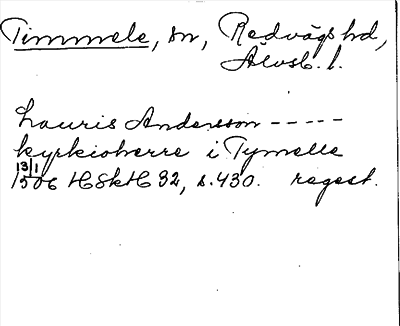 Timmele, sn, Redvägs hd,
Älvsb. l.
Lauris Andersson -----
kyrkioherre i Tymelle
13/1 1506 HSkH 32, s. 430. regest.